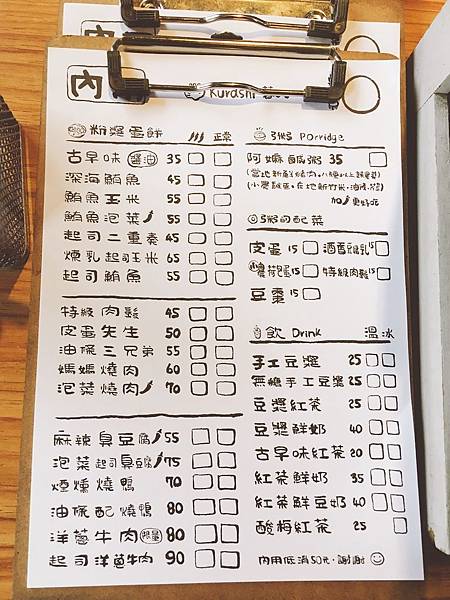 內
Kurashi
粉漿蛋餅 正常
古早味 醬油 35
深海鮪魚 45
鮪魚玉米 55
鮪魚泡菜 55
起司二重奏 45
燻乳起司玉米 65
起司鮪魚 55
特級肉鬆 45
皮蛋先生 50
油條三兄弟 55
媽媽燒肉 60
泡菜燒肉 70
麻辣臭豆腐 55
泡菜起司臭豆腐 75
煙燻燒鴨 70
油條配燒鴨 80
洋蔥牛肉 限量 80
起司洋蔥牛肉 90
粥 Porridge
阿嬤鹹粥 35
加 更好吃
粥的配菜
皮蛋 15 酒香豆腐乳 15
荷包蛋 15 特級肉鬆 15
豆棗 15
飲 Drink 溫 冰
手工豆漿 25
無糖手工豆漿 25
豆漿紅茶 25
豆漿鮮奶 40
古早味紅茶 20
紅茶鮮奶 35
紅茶鮮豆奶 40
酸梅紅茶 25
內用低消50元,謝謝